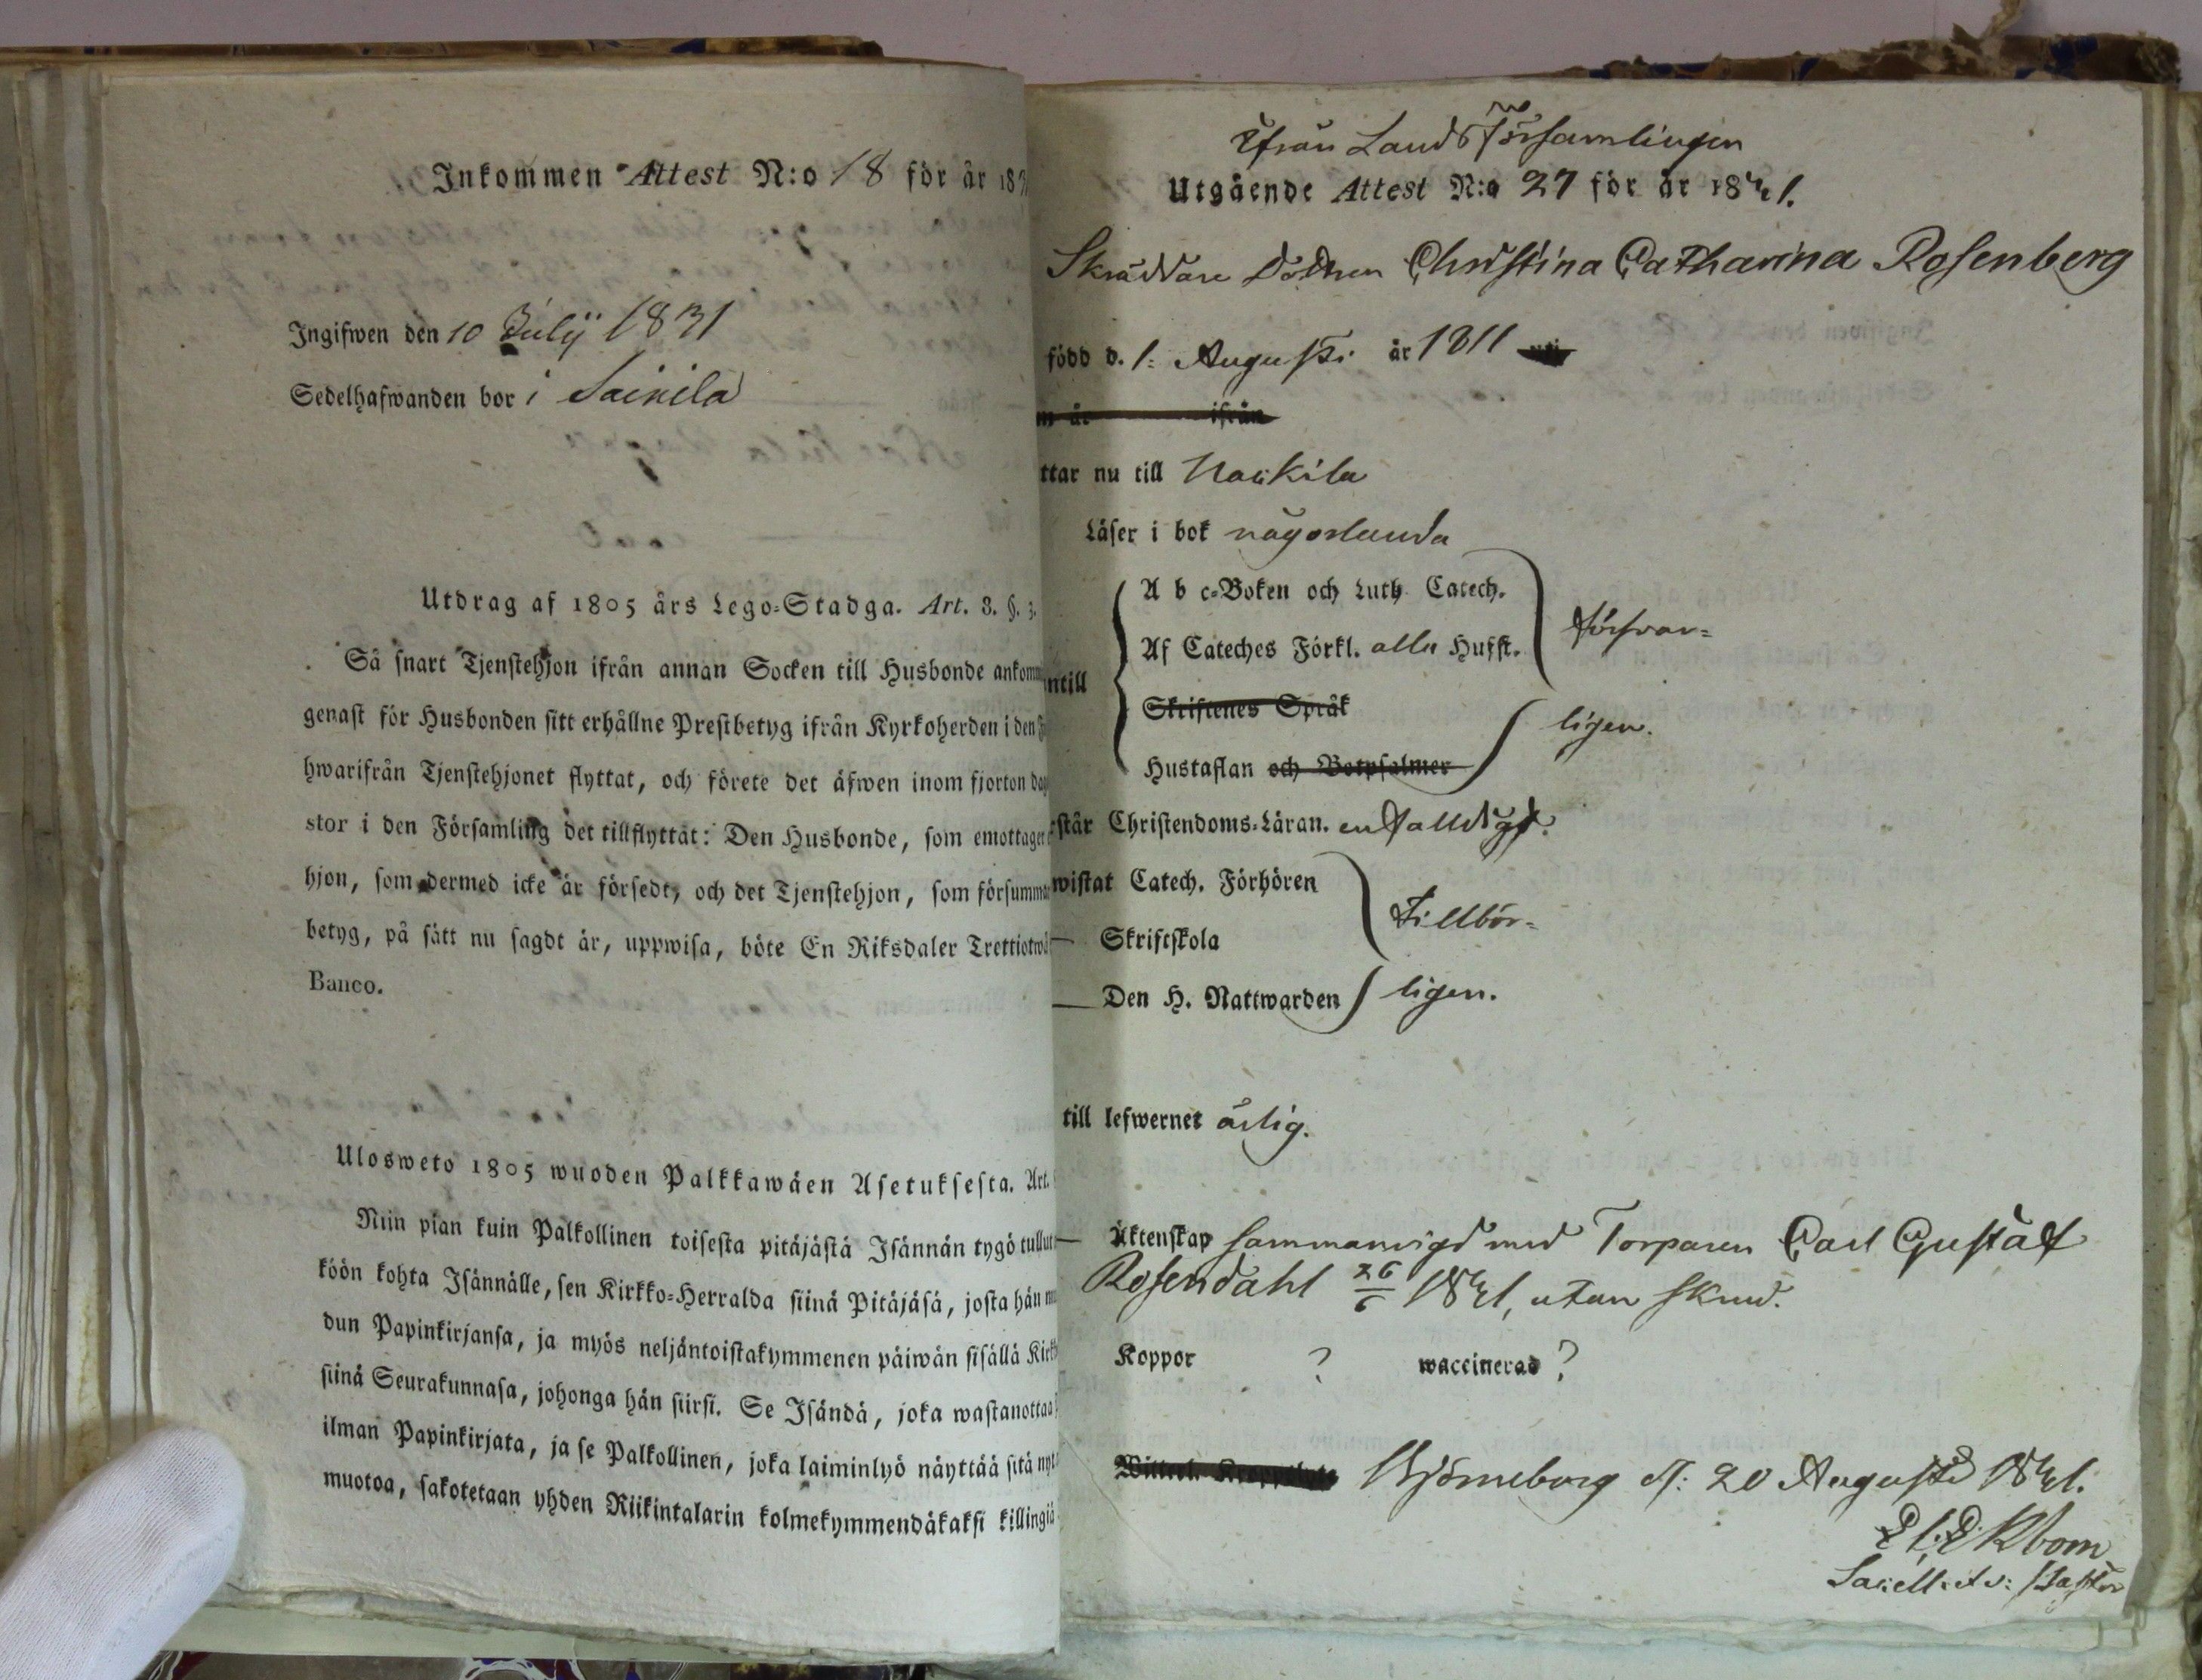 Inkommen Attest N:o 18 för år 183
Ingifwen den 10 Julij 1831
Sedelhafwanden bor i Sainila
Utdrag af 1805 års Lego-Stadga. Art. 3. §. 3.
Så snart Tjenstehjon ifrån annan Socken till Husbonde ankomm
genast för Husbonden sitt erhållne Prestbetyg ifrån Kyrkoherden i den
hwarifrån Tjenstehjonet flyttat, och förete det äfwen inom fjorton dag
stor i den Församling det tillflyttat: Den Husbonde, som emottager
hjon, som dermed icke är försedt, och det Tjenstehjon, som försummar
betyg, på sätt nu sagdt är, uppwisa, böte En Riksdaler Trettiotwå
Banco.
Ulosweto 1805 wuoden Palkkawäen Asetuksesta. Art.
Niin pian kuin Palkollinen toisesta pitäjästä Isännän tygö tullut
köön kohta Isännälle, sen Kirkko-Herralda siinä Pitäjäsä, josta hän mu
dun Papinkirjansa, ja myös neljäntoistakymmenen päiwän sisällä Kirk
siinä Seurakunnasa, johonga hän siirsi. Se Isändä, joka wastanottaa
ilman Papinkirjata, ja se Palkollinen, joka laiminlyö näyttää sitä nyt
muotoa, sakotetaan yhden Riikintalarin kolmekymmendäkaksi killingiä
Ifrån Lands Församlingen
Utgående Attest N:o 27 för år 1841.
Skräddare Dottren Christina Catharina Rosenberg
född d. 1: Augusti år 1811
m år ifrån
ttar nu till Nackila
Läser i bok någorlunda
A b c-Boken och Luth. Catech.
Af Cateches Förkl. alla Hufst. försvar=
ntill
Skriftenes Språk
Hustaflan och Botpsalmer ligen.
rstår Christendoms-Läran. enfalldigt.
wistat Catech. Förhören
— Skriftskola Tillbör=
— Den H. Nattwarden ligen.
till lefwernet ärlig.
— Äktenskap sammanvigd med Torparen Carl Gustaf
Rosendahl 26/6 1841, utan skrud.
Koppor ? waccinerad ?
Björneborg d: 20 Augusti 1841.
El: Ekbom
Sacell: et v: Pastor